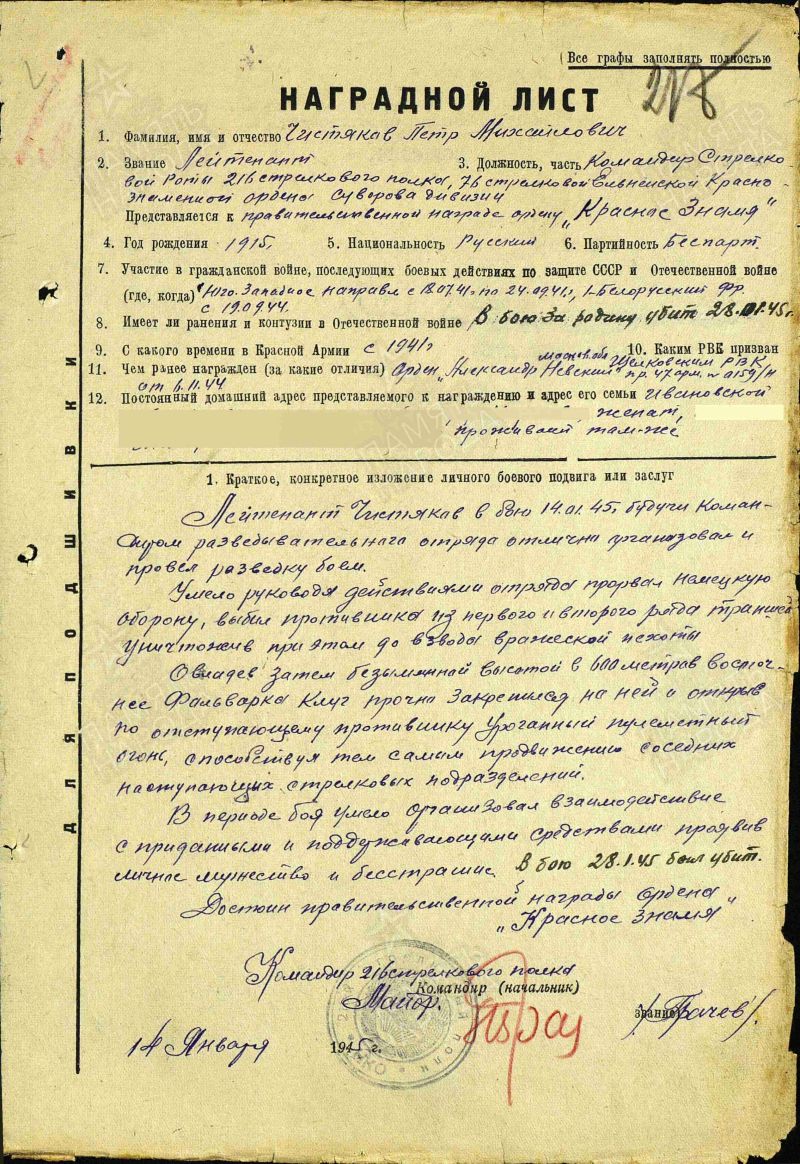 Все графы заполнять полностью
218
НАГРАДНОЙ ЛИСТ
1. Фамилия, имя и отчество Чистяков Петр Михайлович
2. Звание Лейтенант 3. Должность, часть Командир Стрелко-
вой Роты 216 стрелкового полка, 76 стрелковой Ельнинской Красно-
знаменной ордена Суворова дивизии
Представляется к правительственной награде ордену „Красное Знамя"
4. Год рождения 1915, 5. Национальность Русский 6. Партийность Беспарт.
7. Участие в гражданской войне, последующих боевых действиях по защите СССР и Отечественной войне
(где, когда) Юго-Западное направл с 18.07.41г по 24.09.41г, 1-Белорусский Фр.
с 19.09.44.
8. Имеет ли ранения и контузии в Отечественной войне В бою за родину убит 28.01.45г
9. С какого времени в Красной Армии с 1941г 10. Каким РВК призван
Московс. обл Щелковским РВК
11. Чем ранее награжден (за какие отличия) Орден „Александр Невский" пр. 47 арм. № 0159/н
от 6.11.44
12. Постоянный домашний адрес представляемого к награждению и адрес его семьи Ивановской
женат,
проживает там-же
1. Краткое, конкретное изложение личного боевого подвига или заслуг
Лейтенант Чистяков в бою 14.01.45, будучи Коман-
диром разведывательнага отряда отлична организовал и
провел разведку боем.
Умело руководя действиями отряда прорвал Немецкую
оборону, выбил противника из первого и второго ряда траншей
уничтожив при этом до взвода вражеской пехоты
Овладев затем безымянной высотой в 600 метрав восточ-
нее Фальварка Клуг прочна Закрепился на ней и открыв
по отступающему противнику Ураганный пулеметный
огонь, способствуя тем самым продвижению соседних
наступающих стрелковых подразделений.
В периоде боя умело организовал взаимодействие
с приданными и поддуживающими средствами проявив
личнае мужество и бесстрашие. В бою 28.1.45 был убит.
Достоин правительственной награды Ордена
„Красное Знамя"
Командир 216 стрелкового полка
Командир (начальник)
Майор. звание /Грачев/.
14 Января 1945 г.
ДЛЯ ПОДШИВКИ